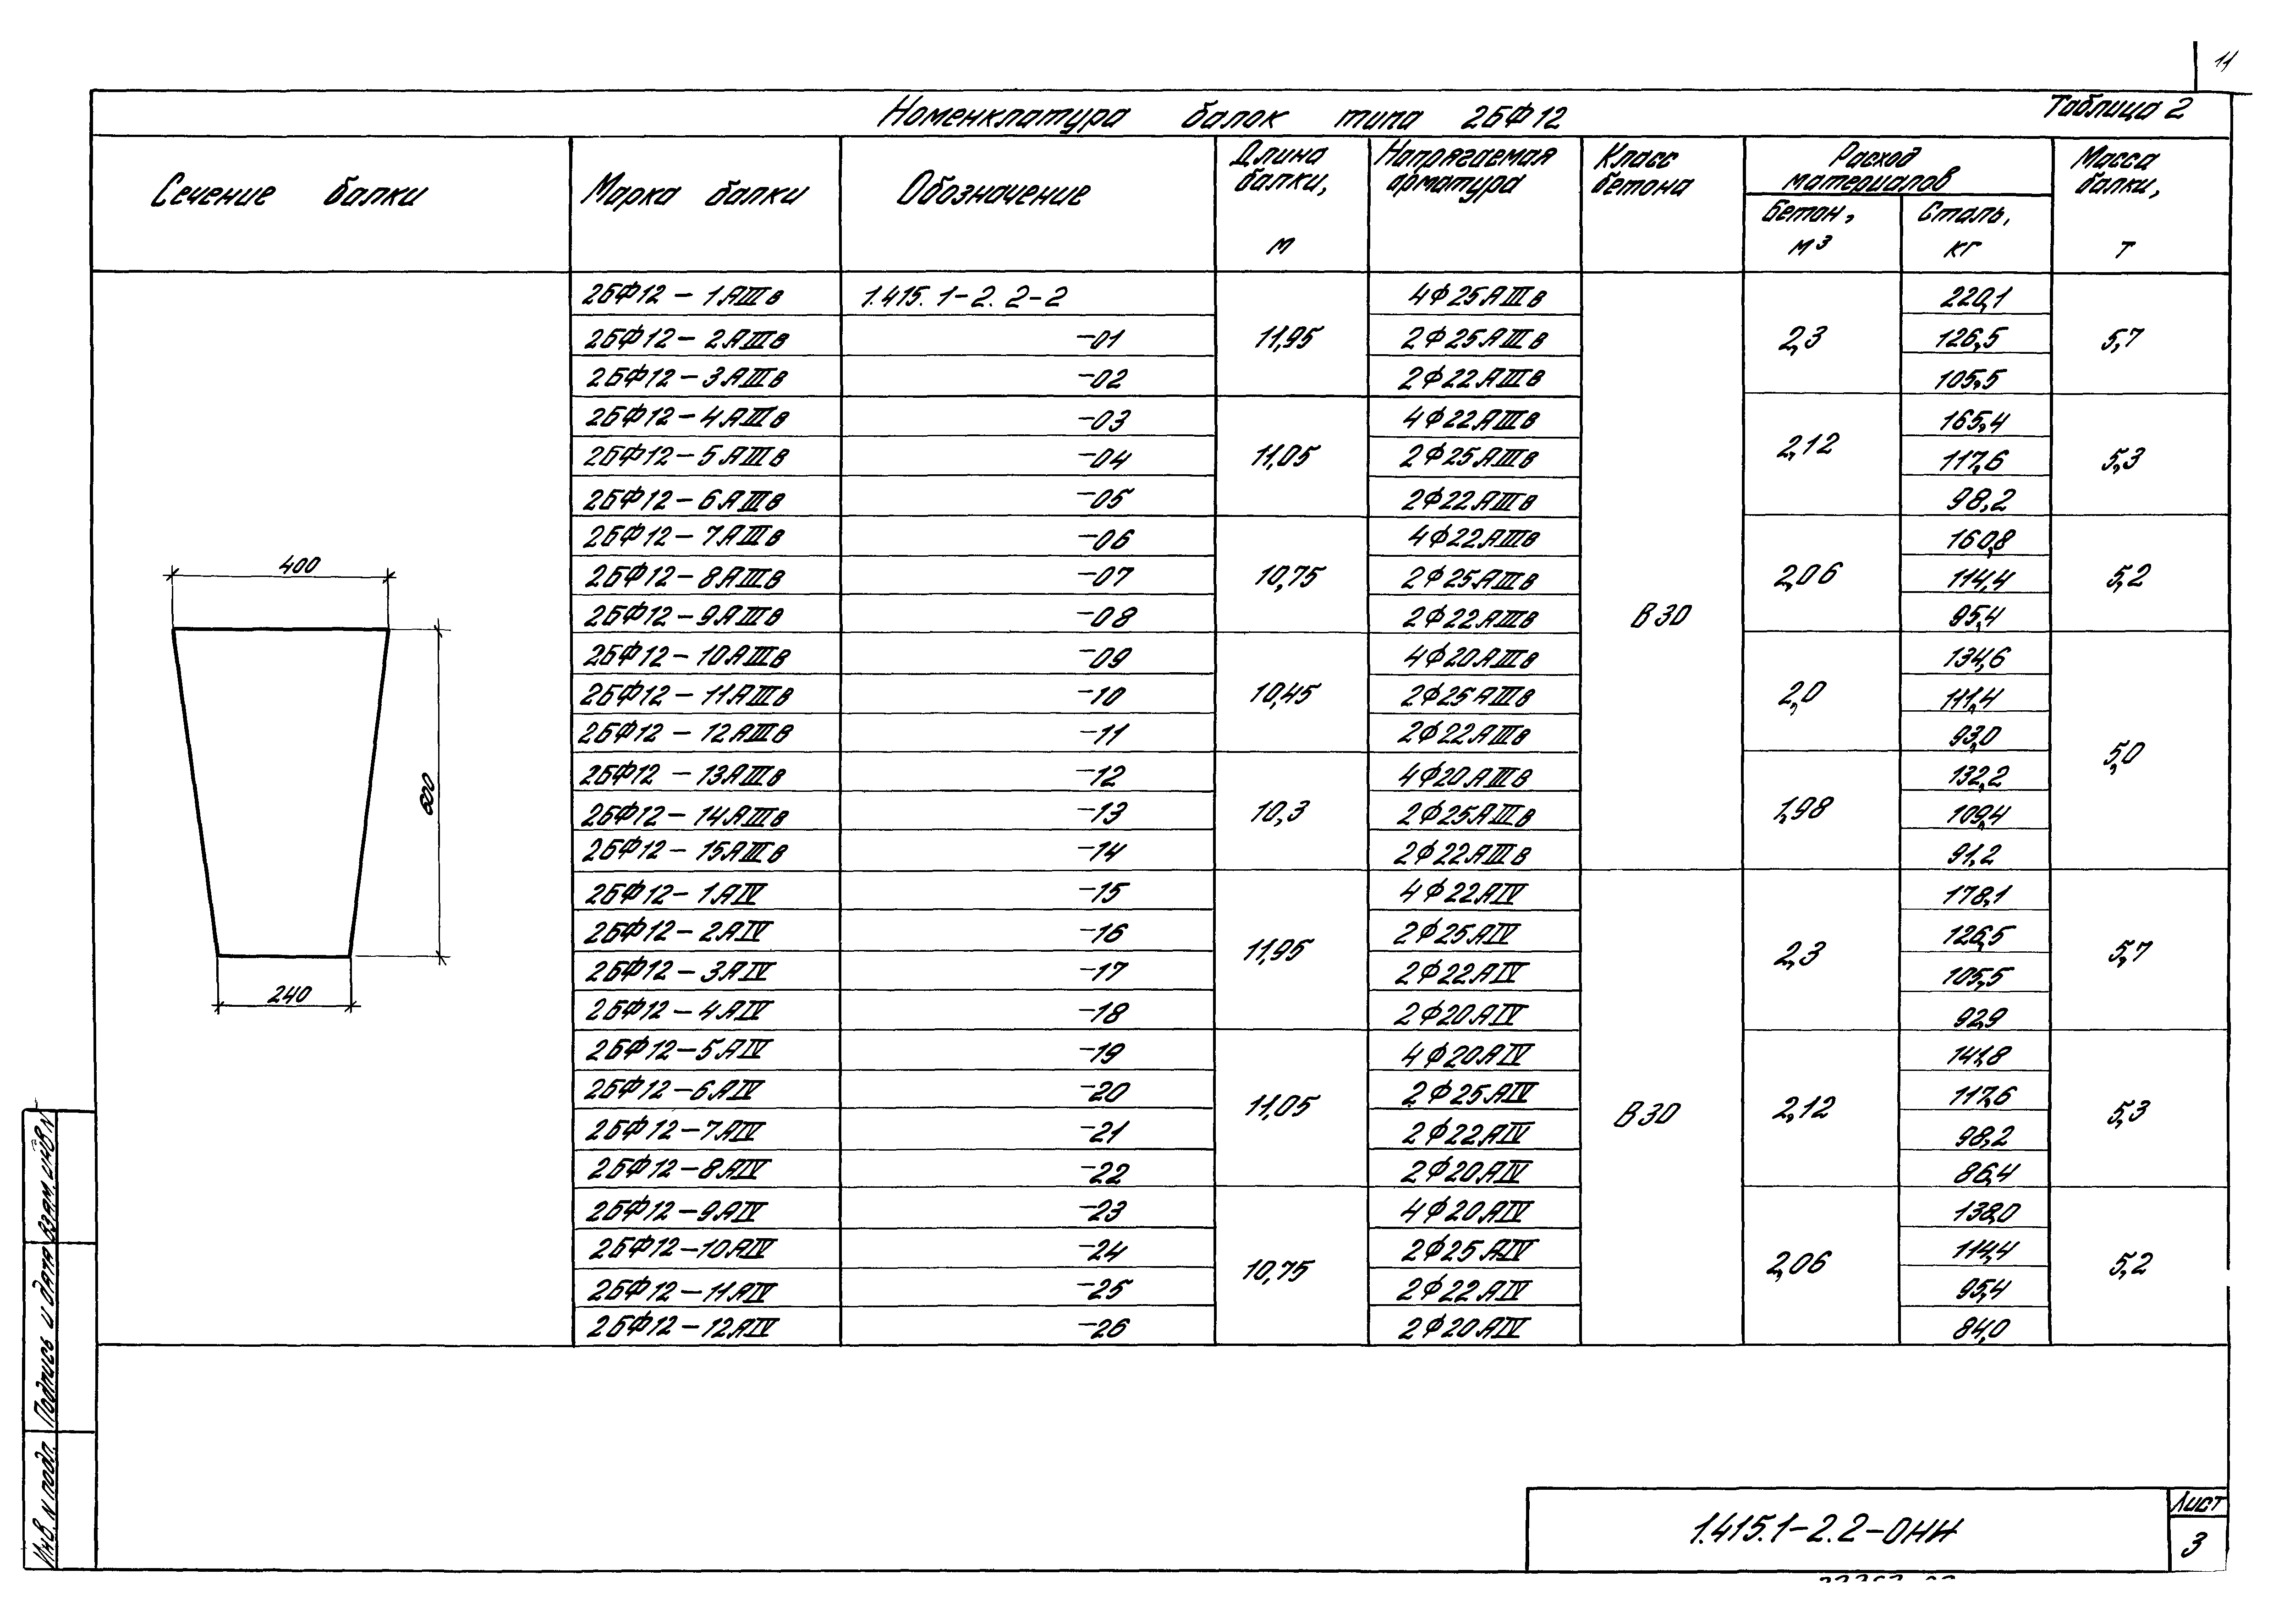 11
Таблица 2
Номенклатура балок типа 2БФ12
Сечение балки
Марка балки
Обозначение
Длина балки, м
Напрягаемая арматура
Класс бетона
Расход материалов
Бетон, м³
Сталь, кг
Масса балки, т
400
600
240
2БФ12-1АIIIв 1.415.1-2.2-2 11,95 4Ф25АIIIв В30 2,3 220,1 5,7
2БФ12-2АIIIв -01 2Ф25АIIIв 126,5
2БФ12-3АIIIв -02 2Ф22АIIIв 105,5
2БФ12-4АIIIв -03 11,05 4Ф22АIIIв 2,12 165,4 5,3
2БФ12-5АIIIв -04 2Ф25АIIIв 117,6
2БФ12-6АIIIв -05 2Ф22АIIIв 98,2
2БФ12-7АIIIв -06 10,75 4Ф22АIIIв 2,06 160,8 5,2
2БФ12-8АIIIв -07 2Ф25АIIIв 114,4
2БФ12-9АIIIв -08 2Ф22АIIIв 95,4
2БФ12-10АIIIв -09 10,45 4Ф20АIIIв 2,0 134,6 5,0
2БФ12-11АIIIв -10 2Ф25АIIIв 111,4
2БФ12-12АIIIв -11 2Ф22АIIIв 93,0
2БФ12-13АIIIв -12 10,3 4Ф20АIIIв 1,98 132,2
2БФ12-14АIIIв -13 2Ф25АIIIв 109,4
2БФ12-15АIIIв -14 2Ф22АIIIв 91,2
2БФ12-1АIV -15 11,95 4Ф22АIV В30 2,3 178,1 5,7
2БФ12-2АIV -16 2Ф25АIV 126,5
2БФ12-3АIV -17 2Ф22АIV 105,5
2БФ12-4АIV -18 2Ф20АIV 92,9
2БФ12-5АIV -19 11,05 4Ф20АIV 2,12 141,8 5,3
2БФ12-6АIV -20 2Ф25АIV 117,6
2БФ12-7АIV -21 2Ф22АIV 98,2
2БФ12-8АIV -22 2Ф20АIV 86,4
2БФ12-9АIV -23 10,75 4Ф20АIV 2,06 138,0 5,2
2БФ12-10АIV -24 2Ф25АIV 114,4
2БФ12-11АIV -25 2Ф22АIV 95,4
2БФ12-12АIV -26 2Ф20АIV 84,0
Взам. инв N
Подпись и дата
Инв. N подл.
1.415.1-2.2-0НИ
Лист
3